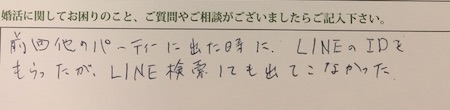 婚活に関してお困りのこと、ご質問やご相談がございましたらご記入下さい。
前回他のパーティーに出た時に、LINEのIDを
もらったが、LINE検索しても出てこなかった。